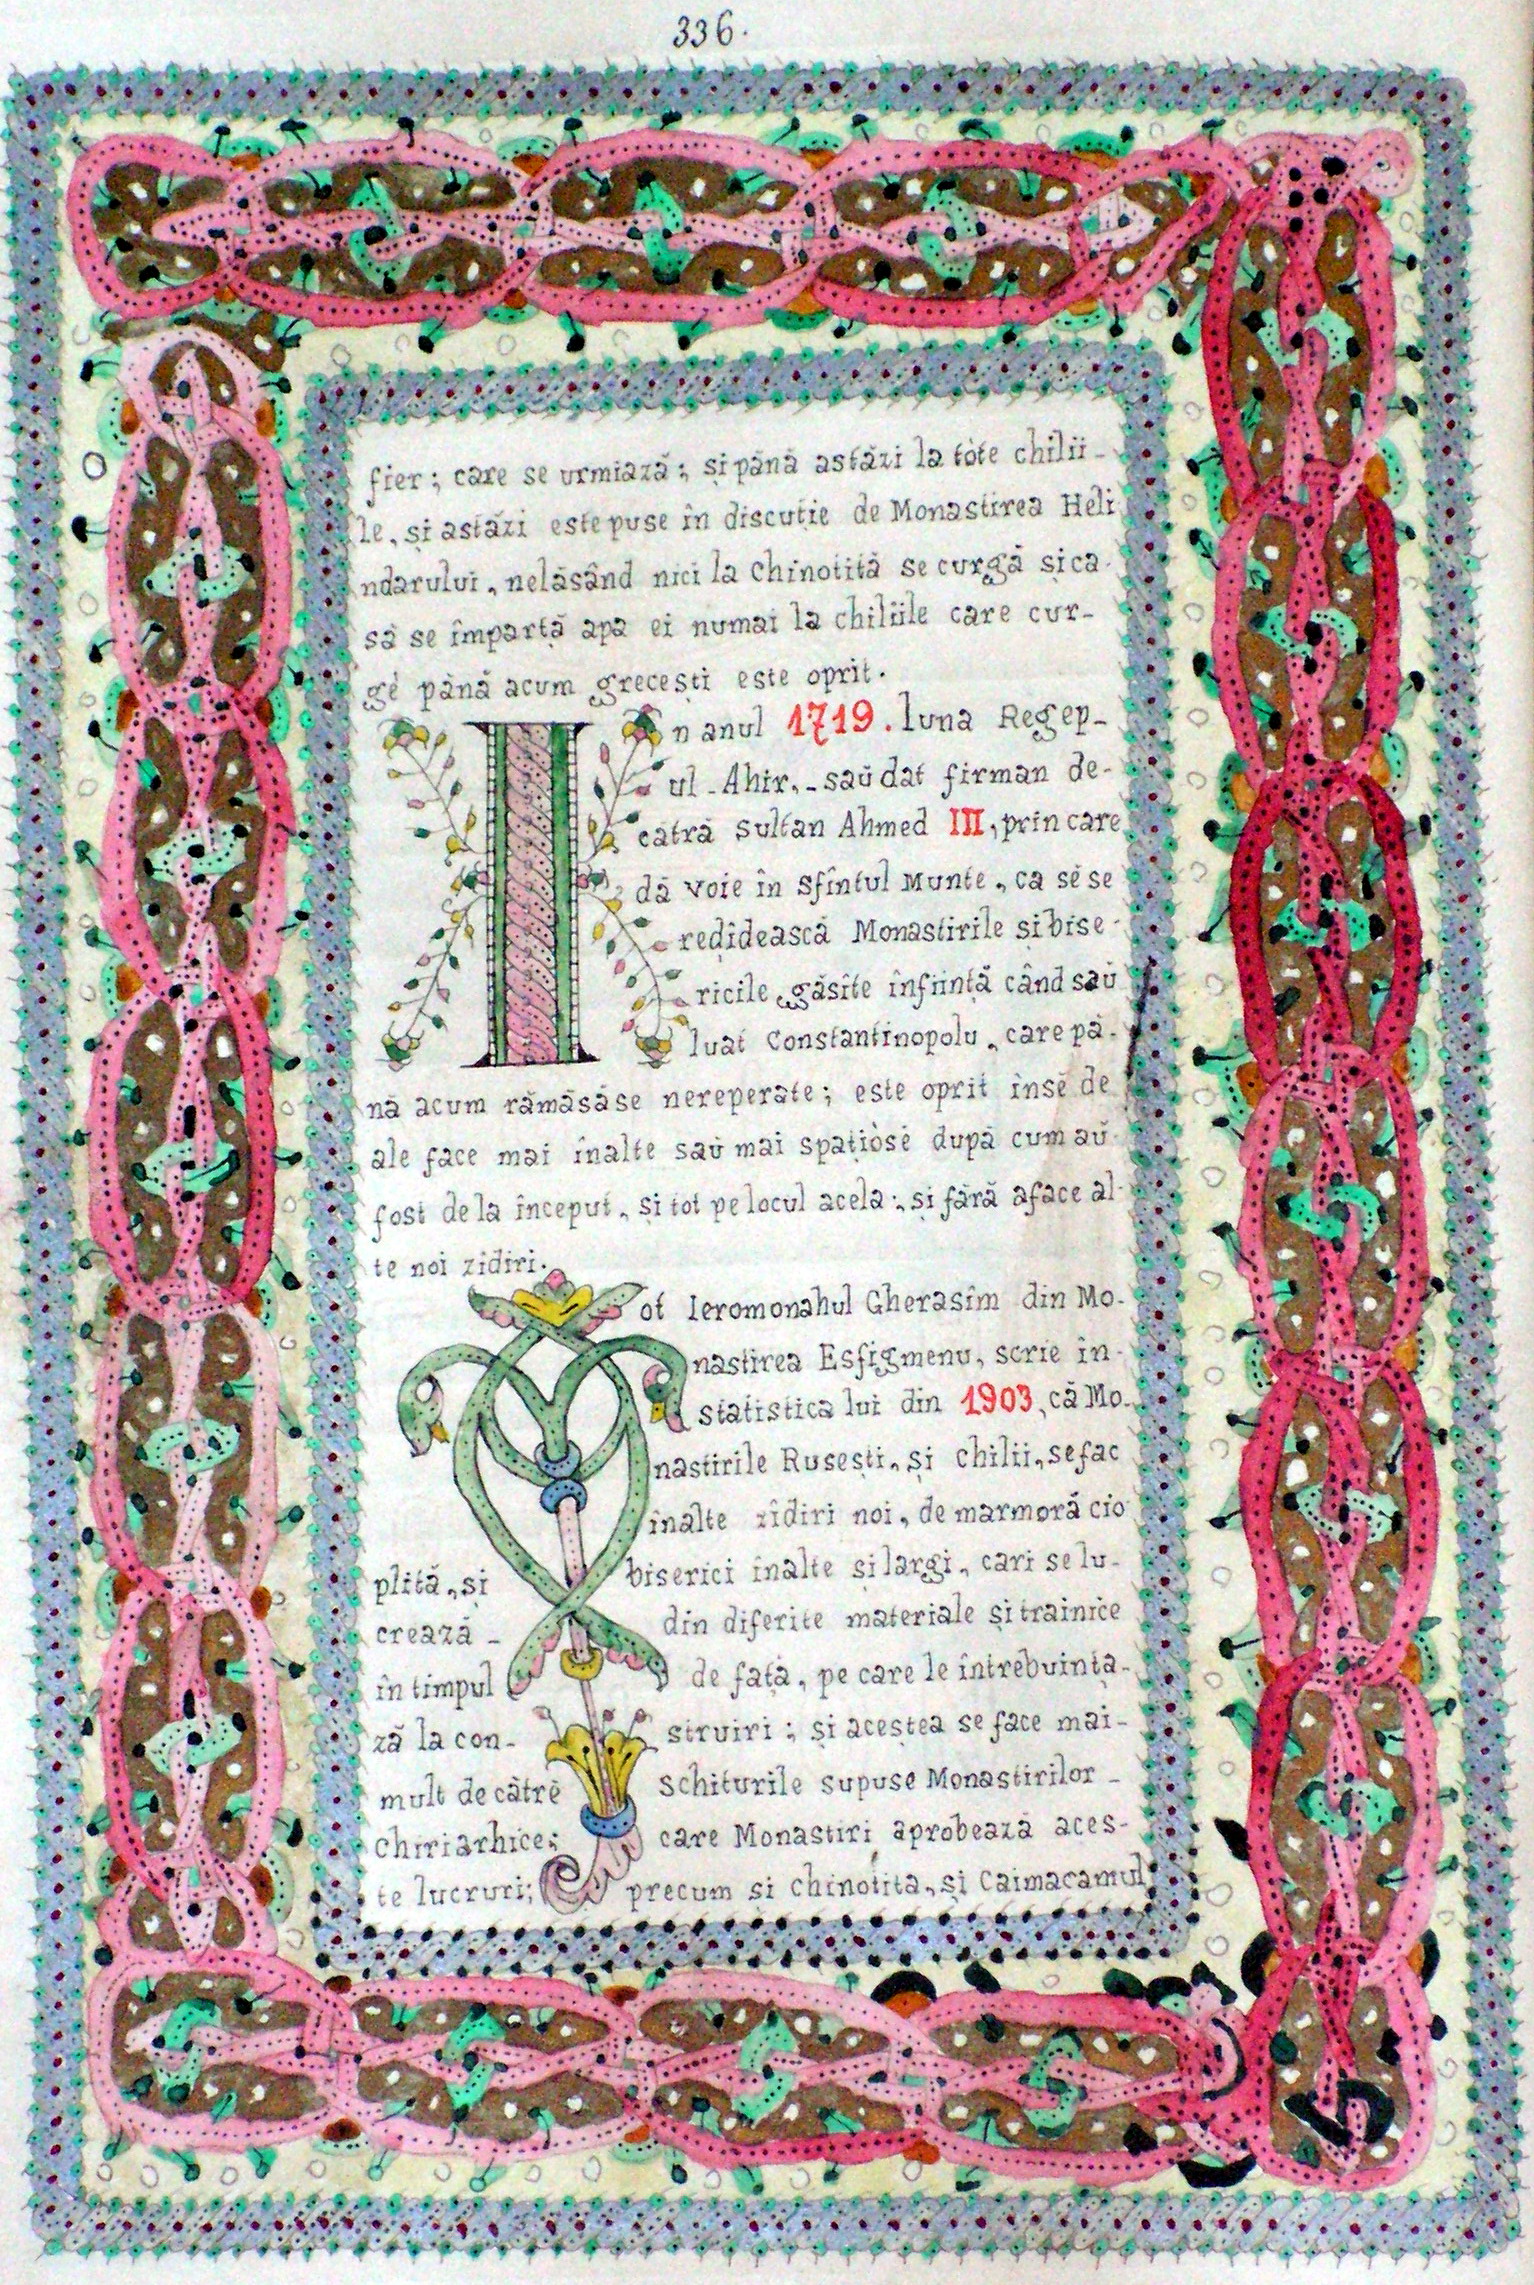 336.
fier; care se urmiază; și până astăzi la tóte chilii-
le, și astăzi este puse în discuție de Monastirea Heli
ndarului, nelăsând nici la Chinotită se curgă și ca
să se împartă apa ei numai la chiliile care cur-
gè până acum grecești este oprit.
In anul 1719. luna Regep-
ul-Ahir,-saŭ dat firman de-
catră Sultan Ahmed III, prin care
dă voie în Sfîntul Munte, ca sĕ se
redidească Monastirile și bise-
ricile găsite înființă când saŭ
luat Constantinopolu, care pă-
nă acum rămăsăse nereperate; este oprit însĕ de
ale face mai înalte saŭ mai spațiòsĕ după cum aŭ
fost de la început, și tot pe locul acela; și fără aface al-
te noi zidiri.
ot Ieromonahul Gherasim din Mo-
nastirea Esfigmenu, scrie în-
statistica lui din 1903, că Mo-
nastirile Rusești, și chilii, se fac
înalte zidiri noi, de marmoră cio
plită, și biserici înalte și largi, cari se lu-
crează - din diferite materiale și trainice
în timpul de față, pe care le întrebuința-
ză la con- struiri; și acestea se face mai-
mult de cătrĕ schiturile supuse Monastirilor -
chiriarhice; care Monastiri aprobează aces-
te lucruri; precum și chinotita, și Caimacamul